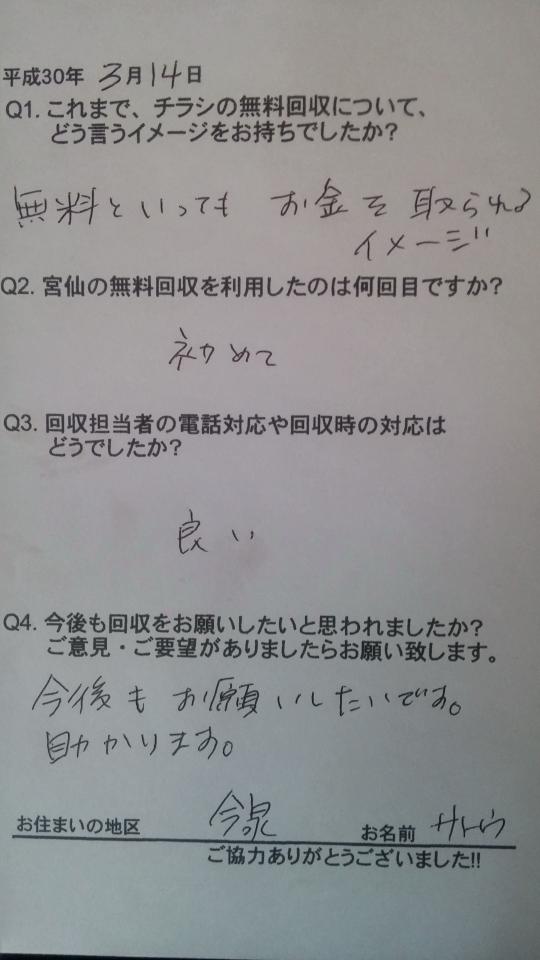 平成30年 3月14日
Q1. これまで、チラシの無料回収について、
どう言うイメージをお持ちでしたか?
無料といっても お金を取られる
イメージ
Q2. 宮仙の無料回収を利用したのは何回目ですか?
初めて
Q3. 回収担当者の電話対応や回収時の対応は
どうでしたか?
良い
Q4. 今後も回収をお願いしたいと思われましたか?
ご意見・ご要望がありましたらお願い致します。
今後も お願いしたいです。
助かります。
お住まいの地区 今泉 お名前 サトウ
ご協力ありがとうございました!!